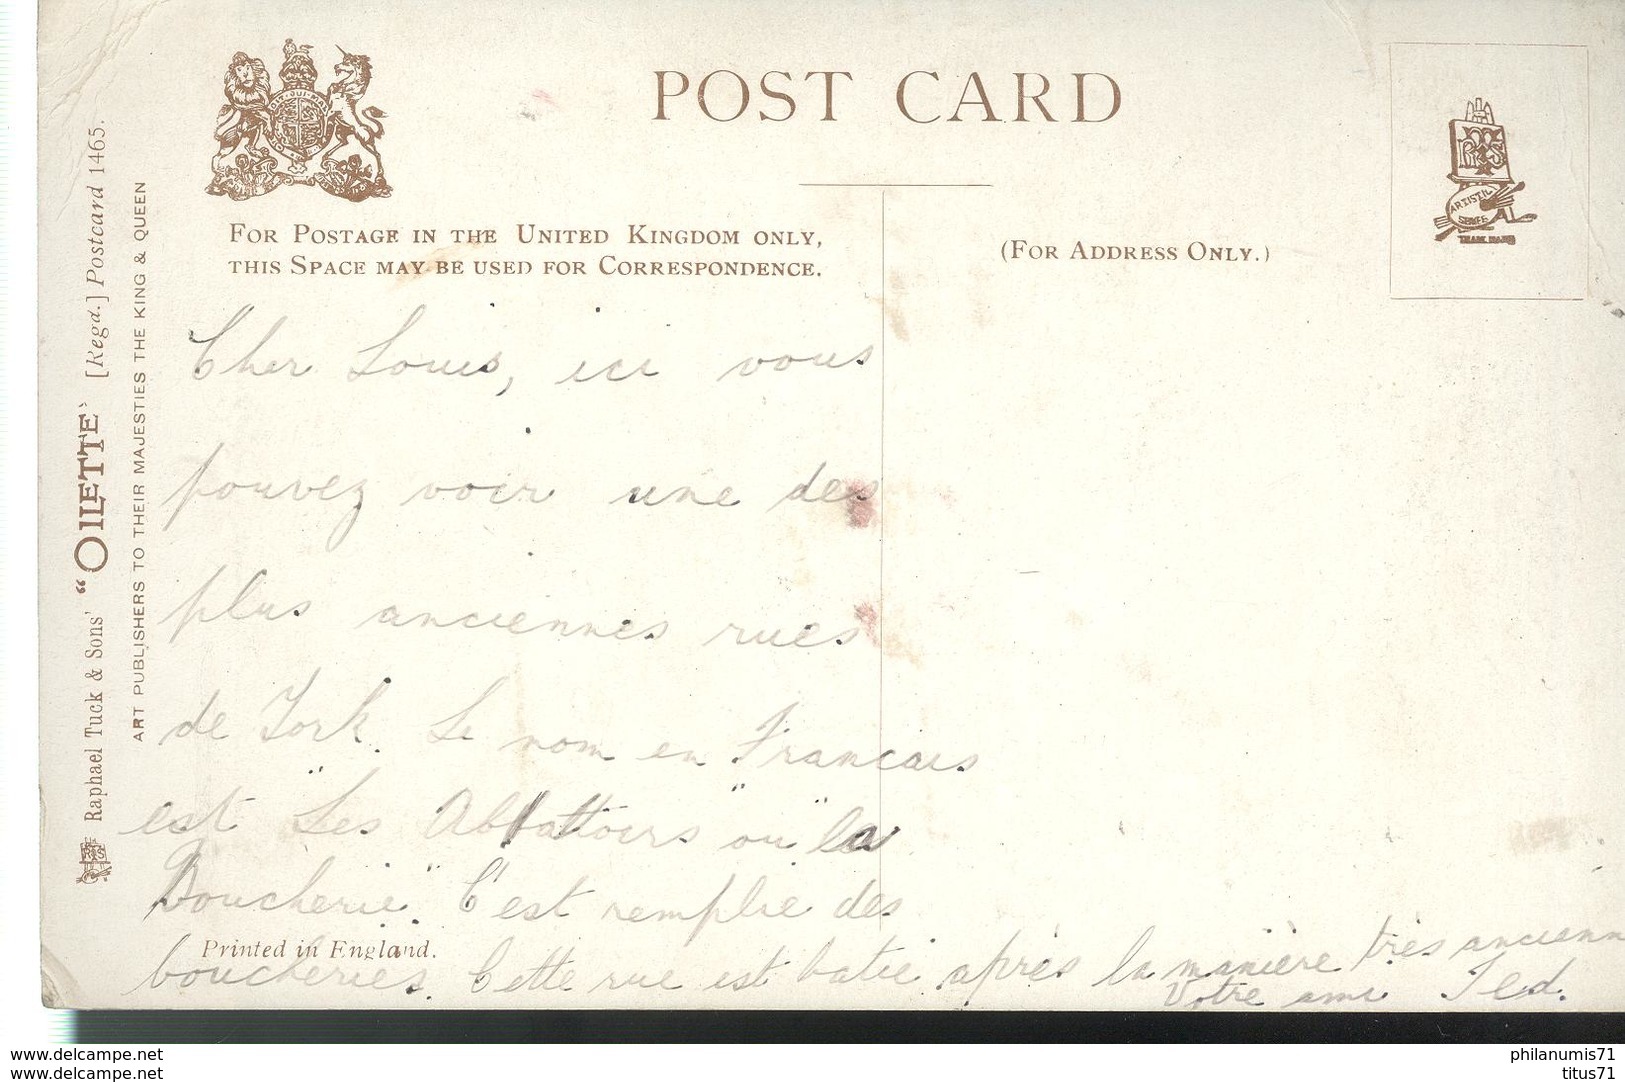 POST CARD
DIEU QUI MAL
FOR POSTAGE IN THE UNITED KINGDOM ONLY,
THIS SPACE MAY BE USED FOR CORRESPONDENCE.
(FOR ADDRESS ONLY.)
RTS
ARTISTIC
SERIES
TRADE MARK
Raphael Tuck & Sons' "OILETTE" [Regd.] Postcard 1465.
ART PUBLISHERS TO THEIR MAJESTIES THE KING & QUEEN
RTS
Cher Louis, ici vous
pouvez voir une des
plus anciennes rues
de York. Le nom en Francais
est "Les Abbattoirs" ou "la
Boucherie". C'est remplie des
boucheries. Cette rue est batie après la manière très ancienn
Votre ami Ted.
Printed in England.
www.delcampe.net
www.delcampe.net
philanumis71
titus71